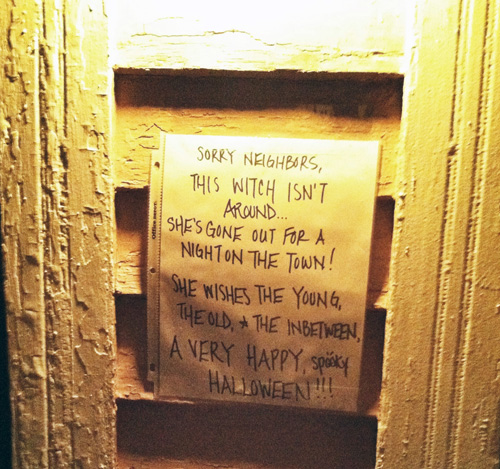 SORRY NEIGHBORS,
THIS WITCH ISN'T
AROUND...
SHE'S GONE OUT FOR A
NIGHT ON THE TOWN!
SHE WISHES THE YOUNG,
THE OLD, & THE INBETWEEN,
A VERY HAPPY, spööky
HALLOWEEN!!!